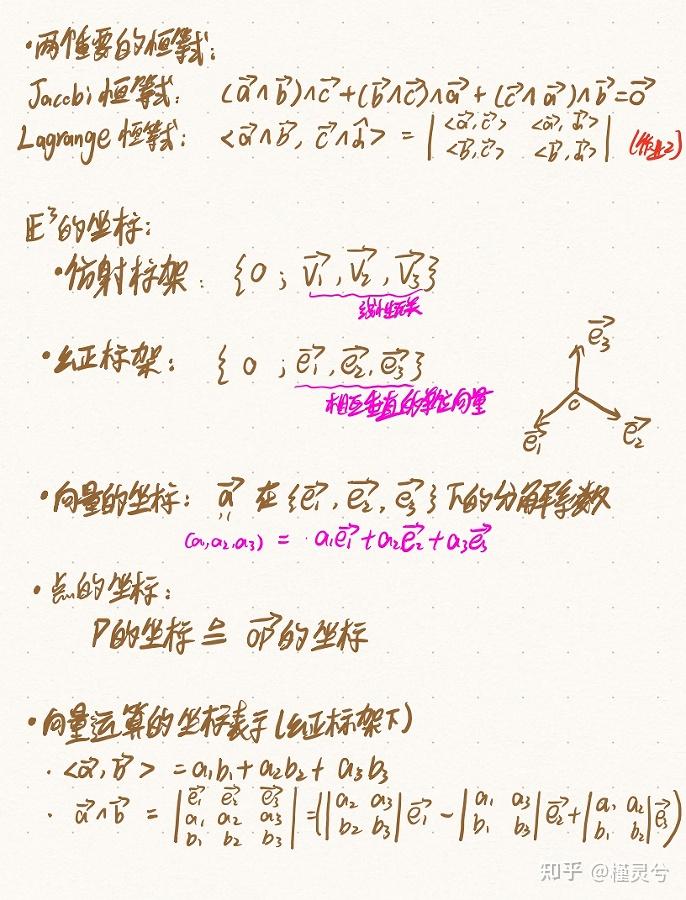 ·两个重要的恒等式:
Jacobi恒等式: (a⃗∧b⃗)∧c⃗+(b⃗∧c⃗)∧a⃗+(c⃗∧a⃗)∧b⃗=0⃗
Lagrange恒等式: <a⃗∧b⃗, c⃗∧d⃗> = |<a⃗,c⃗> <a⃗,d⃗>
<b⃗,c⃗> <b⃗,d⃗>| (作业2)
E³的坐标:
·仿射标架: {O; v₁⃗, v₂⃗, v₃⃗}
线性无关
·幺正标架: {O; e₁⃗, e₂⃗, e₃⃗}
相互垂直的单位向量
e₃⃗
O
e₁⃗ e₂⃗
·向量的坐标: a⃗ 在{e₁⃗, e₂⃗, e₃⃗}下的分解系数
(a₁,a₂,a₃) = a₁e₁⃗+a₂e₂⃗+a₃e₃⃗
·点的坐标:
P的坐标 ≙ OP⃗的坐标
·向量运算的坐标表示(幺正标架下)
·<a⃗,b⃗> = a₁b₁+a₂b₂+a₃b₃
·a⃗∧b⃗ = |e₁⃗ e₂⃗ e₃⃗
a₁ a₂ a₃
b₁ b₂ b₃| = (|a₂ a₃
b₂ b₃|e₁⃗ - |a₁ a₃
b₁ b₃|e₂⃗ + |a₁ a₂
b₁ b₂|e₃⃗)
知乎 @槿灵兮